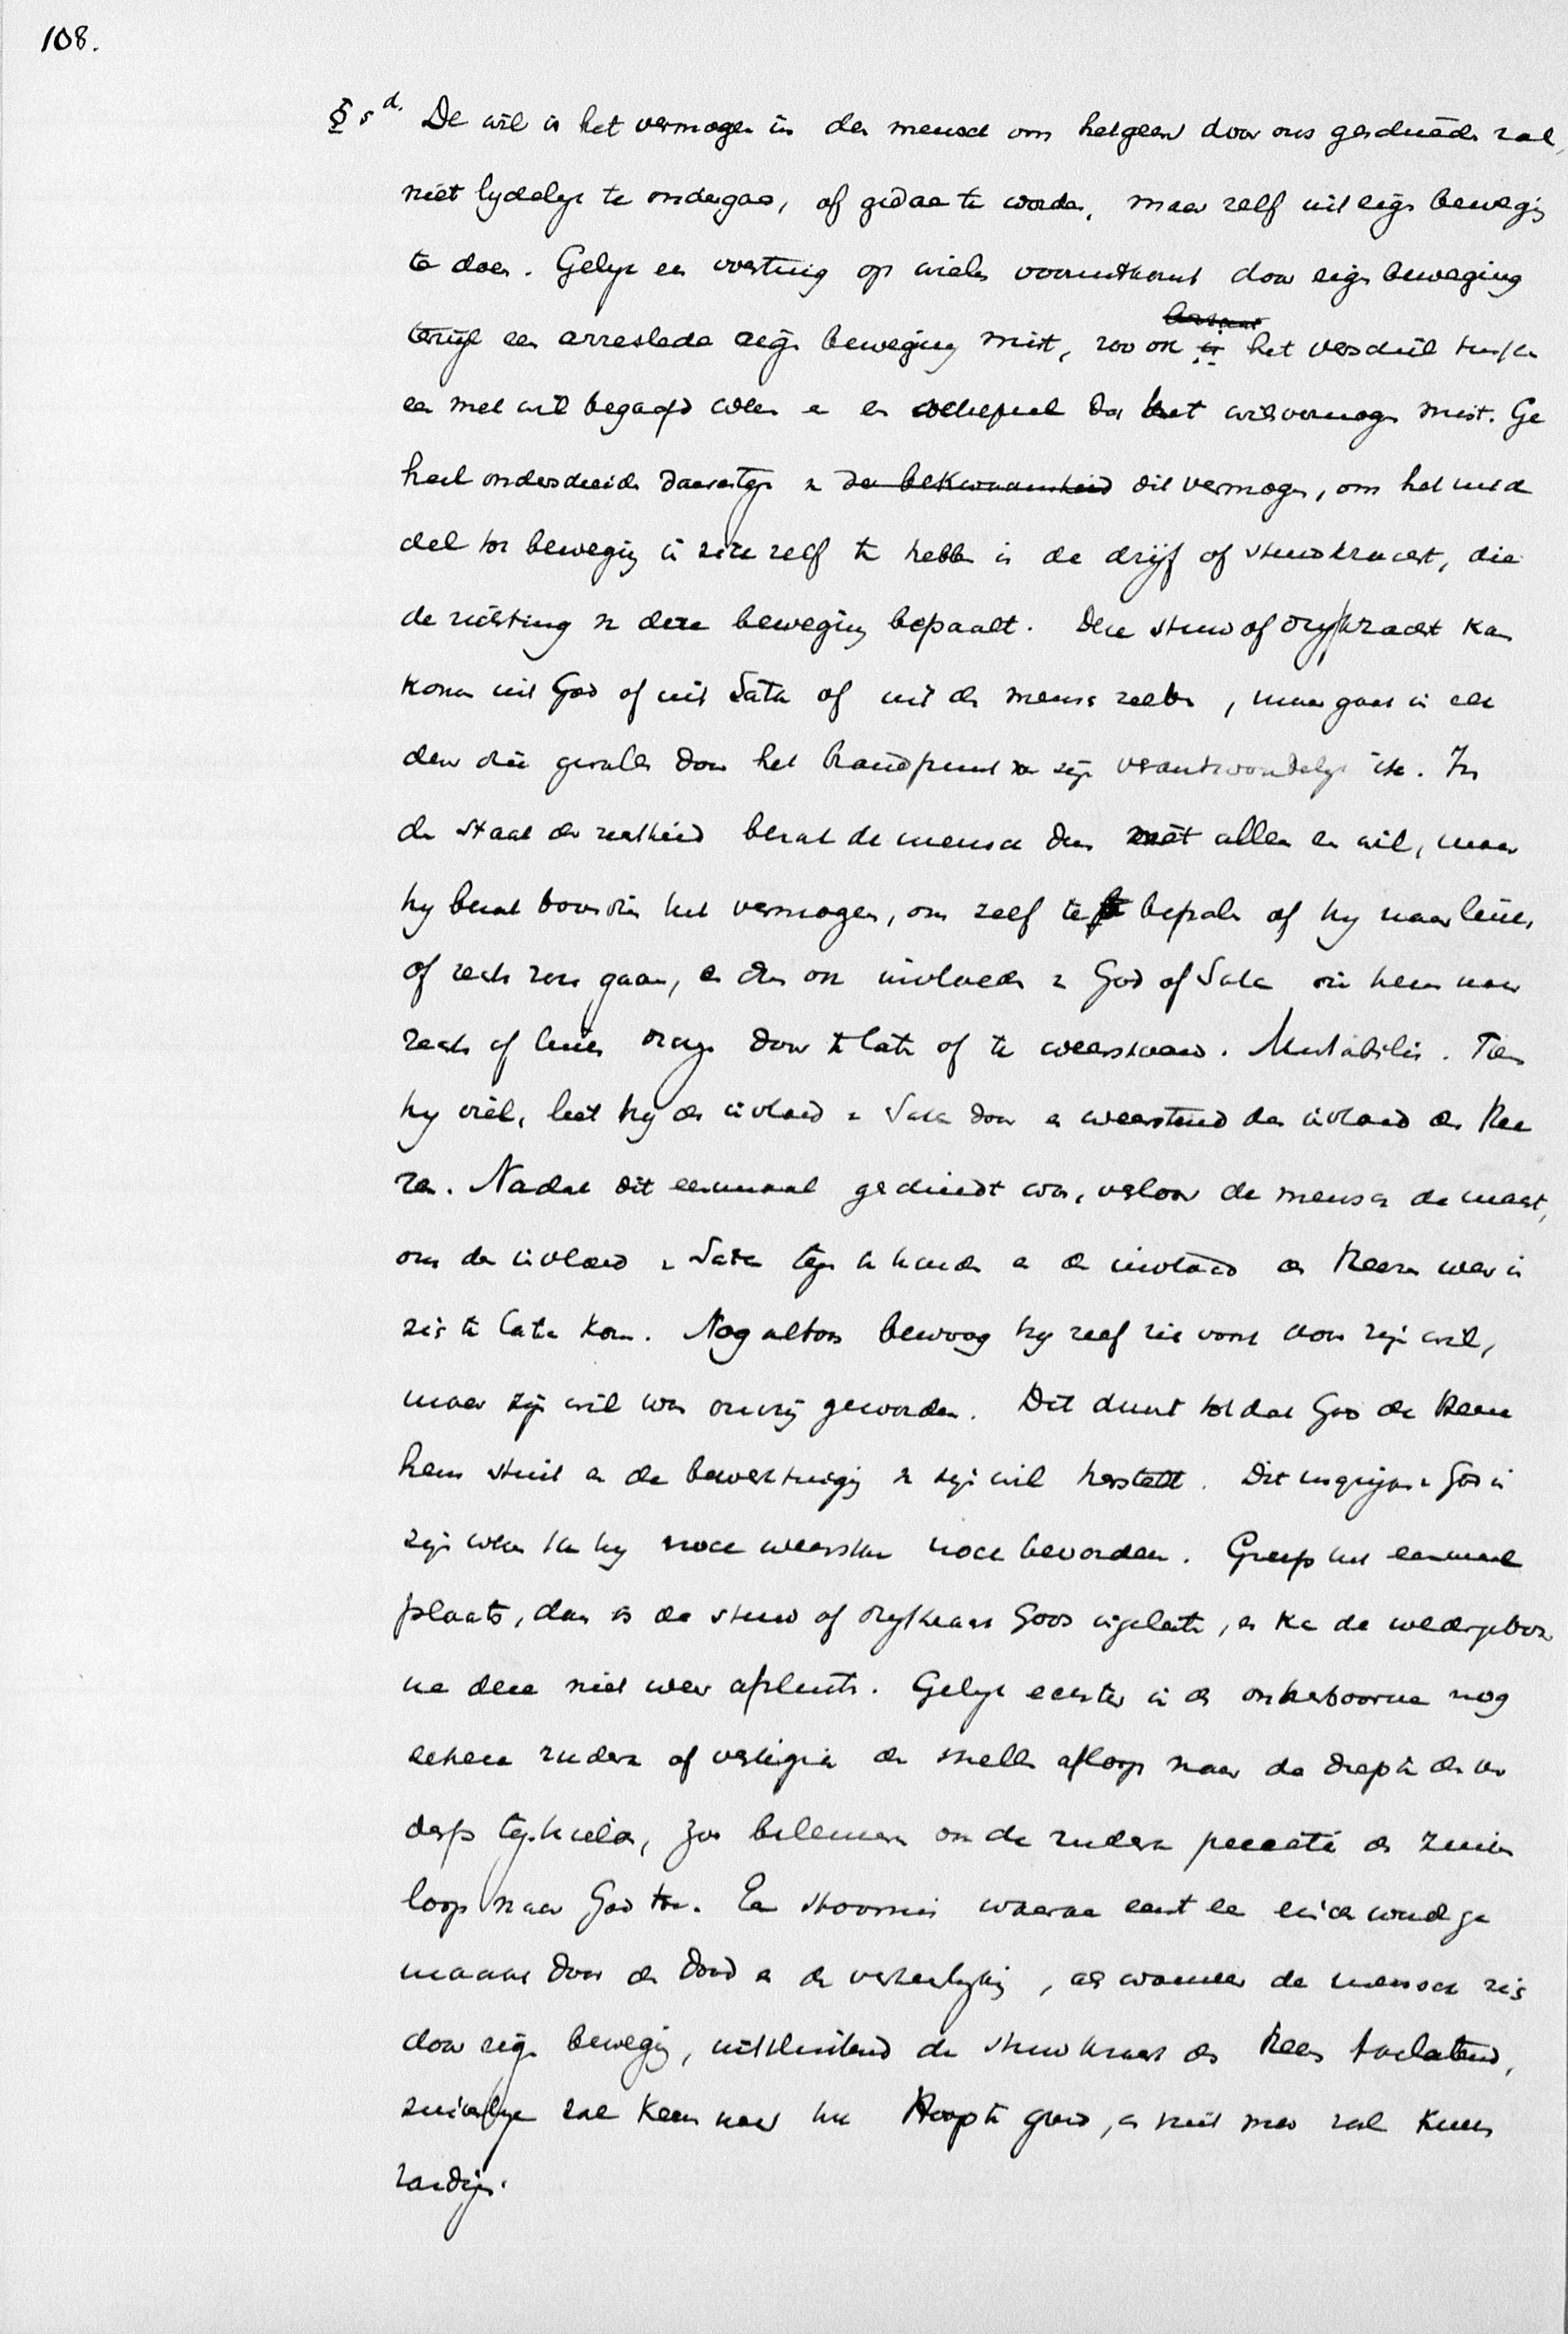 108.
§ 5 d. De wil is het vermogen in den mensch om hetgeen door ons geschieden zal,
niet lydelyk te ondergaan, of gedaan te worden, maar zelf uit eigen beweging
te doen. Gelyk een voertuig op wielen vooruitkomt door eigen beweging
terwijl een arreslede eigen beweging mist, zoo ook is het verschil tusschen
een met wil begaafd wezen en een dat het wilsvermogen mist. Ge
heel onderscheiden daarentegen van de bekwaamheid dit vermogen, om het mid
del tot beweging in zich zelf te hebben is de drijf of stuwkracht, die
de richting van deze beweging bepaalt. Deze stuw of dryfkracht kan
komen uit God of uit Satan of uit den mensch zelven, maar gaat in elk
der drie gevallen door het brandpunt van zijn verantwoordelyk ik. In
den staat der rechtheid bezat de mensch dus niet alleen een wil, maar
hy bezat bovendien het vermogen, om zelf te bepalen of hy naar links
of rechts zou gaan, en dus ook invloeden van God of Satan die hem naar
rechts of links drongen door te laten of te weerstaan. Mutabilis. Toen
hy viel, liet hy den invloed van Satan door en weerstond den invloed des Hee
ren. Nadat dit eenmaal geschiedt was, verloor de mensch de macht,
om den invloed van Satan tegen te houden en den invloed des Heeren weer in
zich te laten komen. Nog altoos bewoog hy zelf zich voort door zijn wil,
maar zijn wil was onvrij geworden. Dit duurt totdat God de Heere
hem stuit en de bewerktuiging van zijn wil herstelt. Dit ingrijpen van God in
zijn wezen kan hy noch weerstaan noch bevorderen. Greep het eenmaal
plaats, dan is de stuw of dryfkracht Gods ingelaten, en kan de wedergebore
ne deze niet weer afsluiten. Gelyk echter in den onherboorne nog
zekere rudera of vestigia den snellen afloop naar de diepte des ver
derfs tegenhielden, zoo belemmeren ook de rudera peccati den zuiveren
loop naar God toe. Een stoornis waaraan eerst een einde wordt ge
maakt door den dood en de verheerlyking, als wanneer de mensch zich
door eigen beweging, uitsluitend de stuwkracht des Heeren toelatend,
zuiverlyk zal keeren naar het Hoogste goed, en niet meer zal kunnen
zondigen.